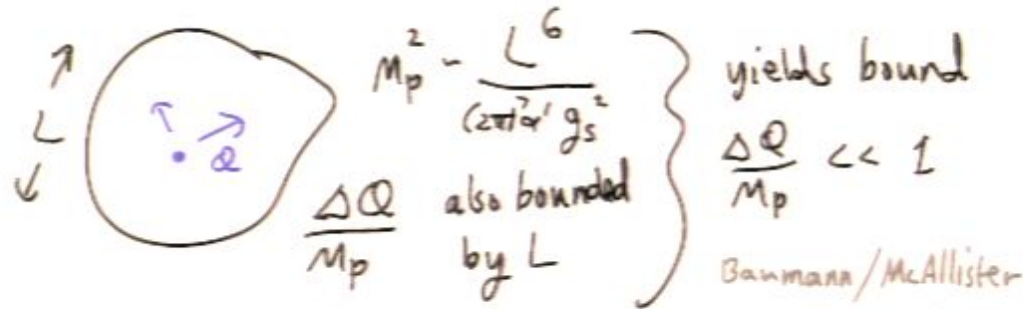 L
Q
M_p^2 ~ L^6 / (2π)^7 α' g_s^2
ΔQ / M_p also bounded
by L
yields bound
ΔQ / M_p << 1
Baumann/McAllister